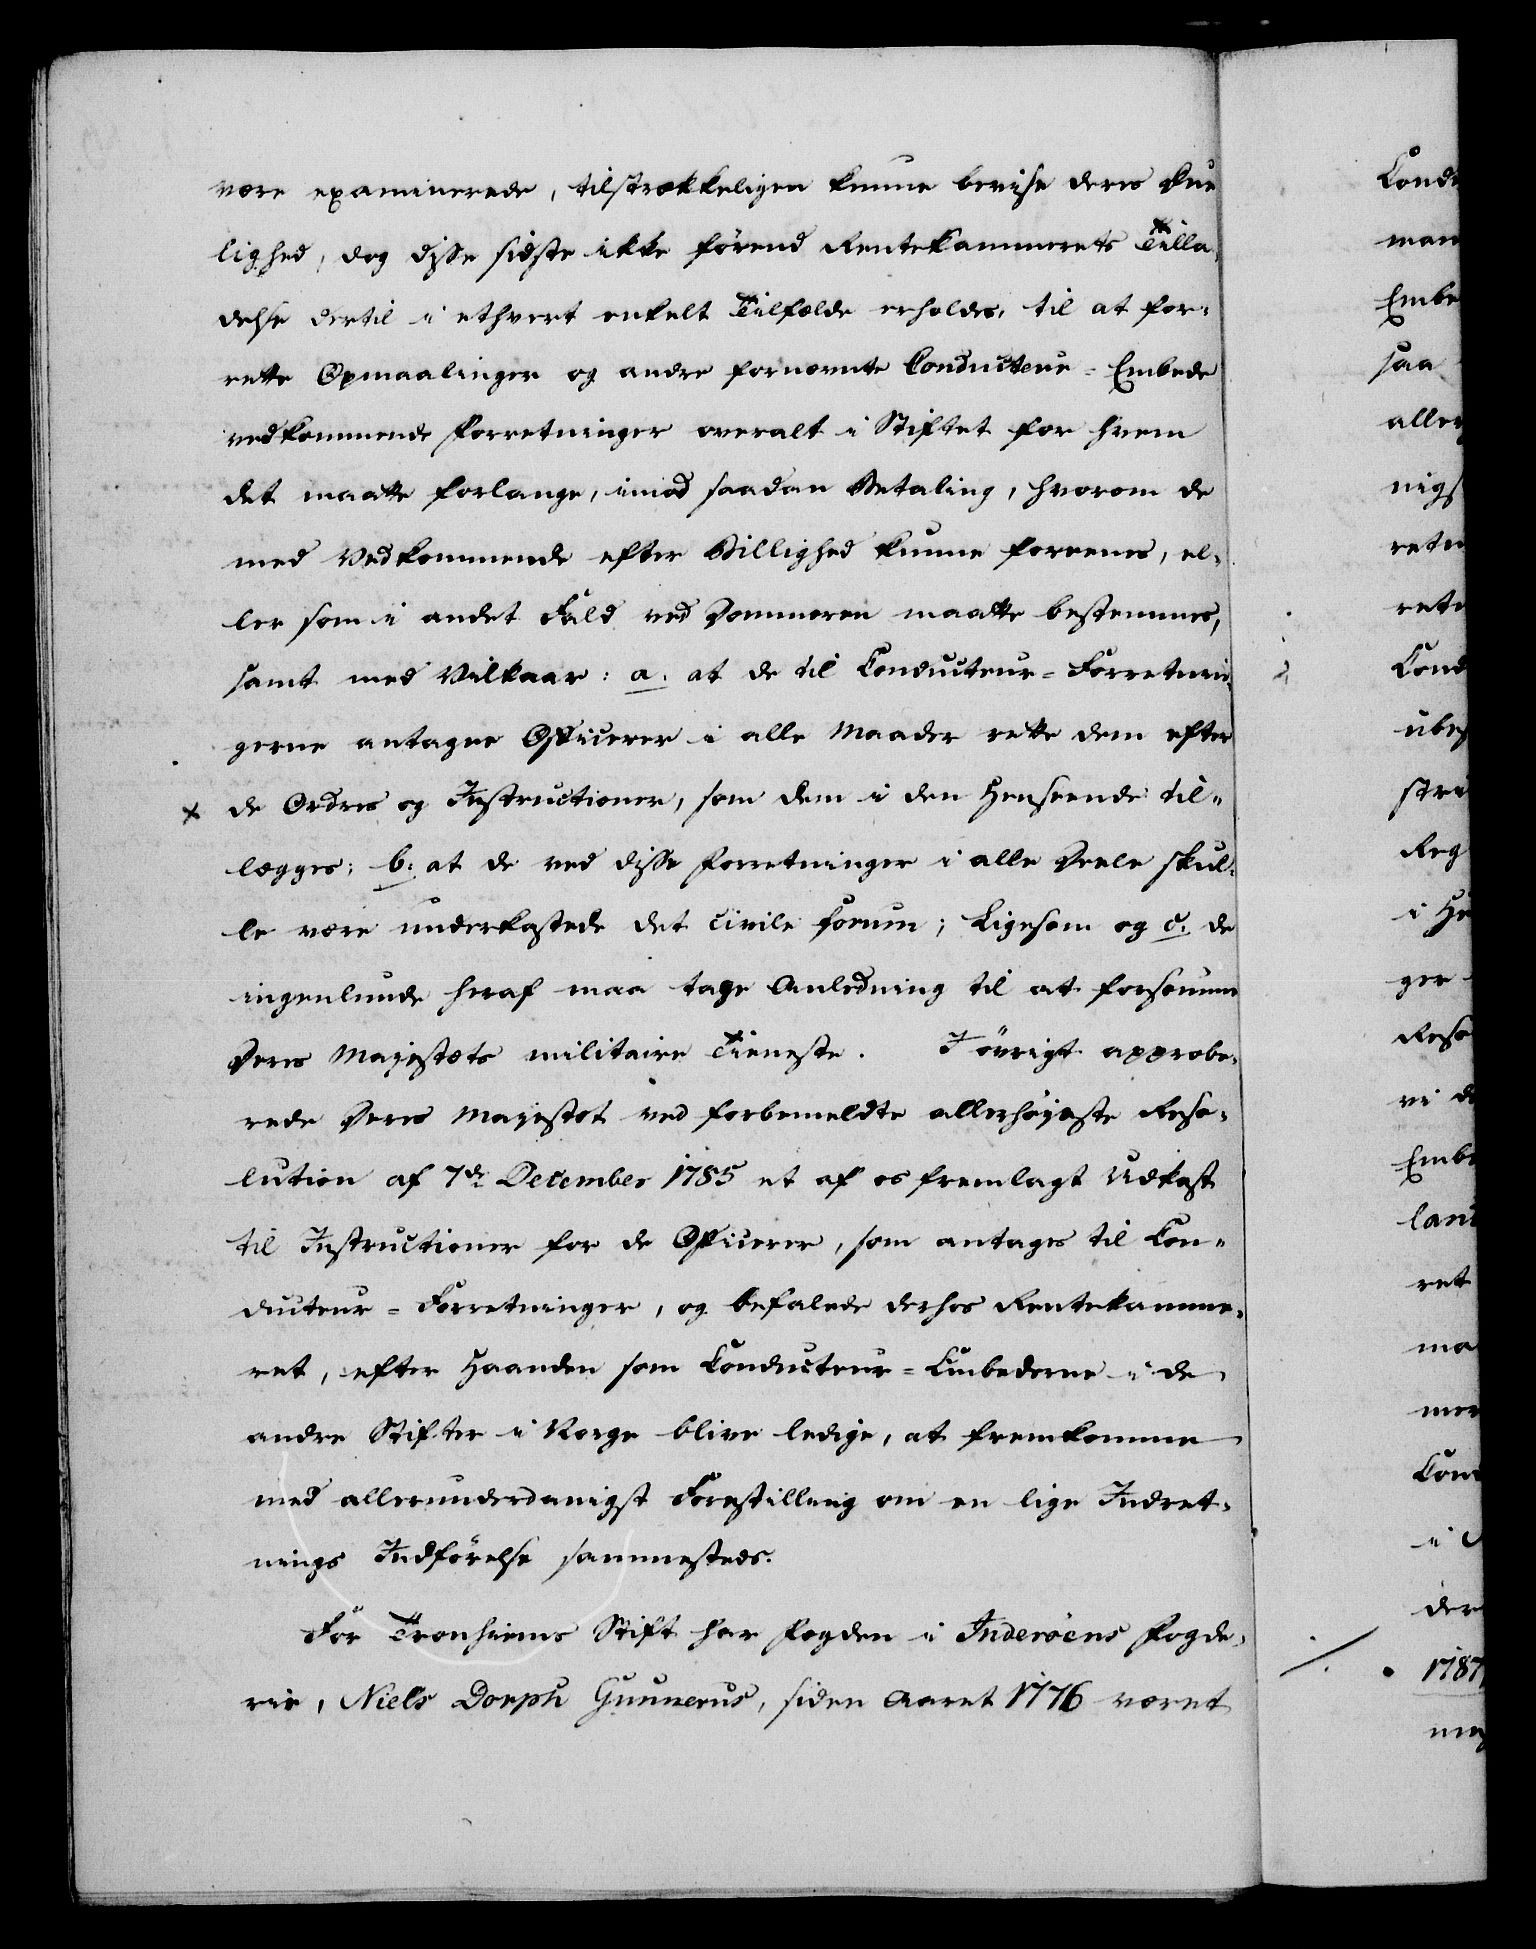 være examinerede, tilstrækkeligen kunne bevise deres Due
lighed, dog disse sidste ikke förend Rentekammerets Tilla,
delse dertil i ethvert enkelt Tilfælde erholdes, til at for,
rette Opmaalinger og andre fornævnte Conducteur-Embede
vedkommende Forretninger overalt i Stiftet for hvem
det maatte forlange, imod saadan Betaling, hvorom de
med Vedkommende efter Billighed kunne foreenes, el,
ler som i andet Fald ved Dommeren maatte bestemmes,
samt med Vilkaar: a. at de til Conducteur-Forretnin,
gerne antagne Officerer i alle Maader rette dem efter
x de Ordres og Instructioner, som dem i den Henseende til,
lægges; b. at de ved disse Forretninger i alle Deele skul,
le være underkastede det civile forum; Ligesom og c. de
ingenlunde heraf maa tage Anledning til at forsömme
Deres Majestæts militaire Tieneste. I övrigt approbe,
rede Deres Majestæt ved forbemeldte allerhöjeste Reso,
lution af 7de December 1785 et af os fremlagt Udkast
til Instructioner for de Officerer, som antages til Con,
ducteur-Forretninger, og befalede derhos Rentekamme,
ret, efter Haanden som Conducteur-Embederne i de
andre Stifter i Norge blive ledige, at fremkomme
med allerunderdanigst Forestilling om en lige Indret,
nings Indförelse sammesteds.
For Tronhiems Stift har Fogden i Inderöens Fogde,
rie, Niels Dorph Gunnerus, siden Aaret 1776 været
Cond
man
Embe
saa
aller
nigs
retn
rete
Cond
ubes
stru
Reg
i He
ger
Reso
vi de
Embe
land
ret
ma
mer
Con
i
der
1787